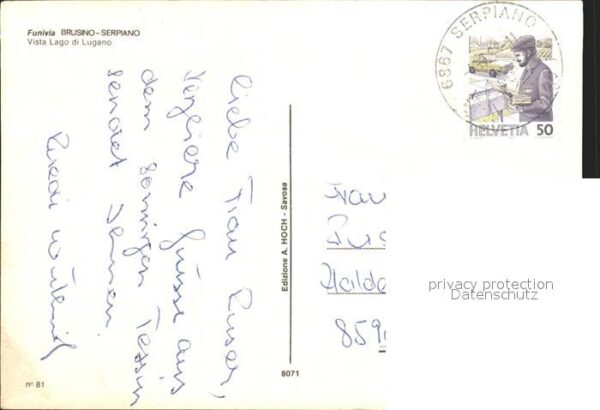 Funivia BRUSINO-SERPIANO
Vista Lago di Lugano
6867 SERPIANO
HELVETIA 50
Liebe Frau Ruser,
Grüsse aus
dem sonnigen Tessin
sendet Ihnen
Ruedi
Edizione A. HOCH - Savosa
Frau
Rus
Halde
859
privacy protection
Datenschutz
n° 81
8071